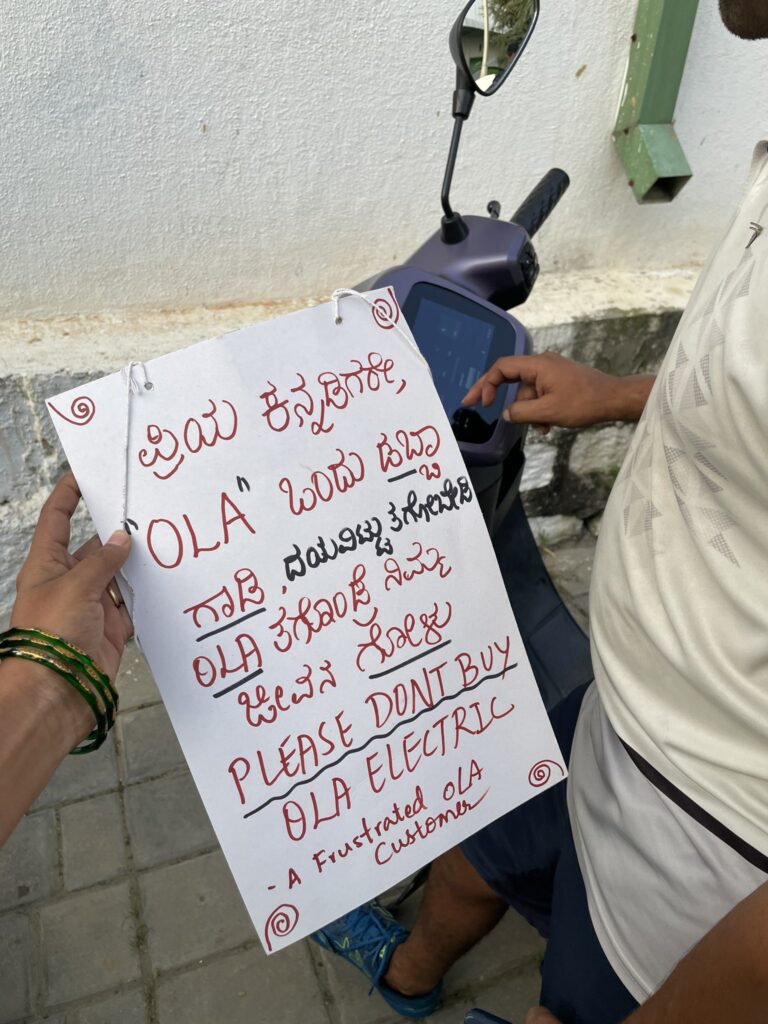 ಪ್ರಿಯ ಕನ್ನಡಿಗರೇ,
"OLA" ಒಂದು ಡಬ್ಬಾ
ಗಾಡಿ, ದಯವಿಟ್ಟು ತಗೋಬೇಡಿ
OLA ತಗೊಂಡ್ರೆ ನಿಮ್ಮ
ಜೀವನ ಗೋಳು
PLEASE DONT BUY
OLA ELECTRIC
- A Frustrated OLA
Customer